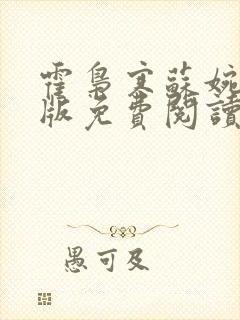 霍梟寒蘇婉
版免費閱讀
愚可及